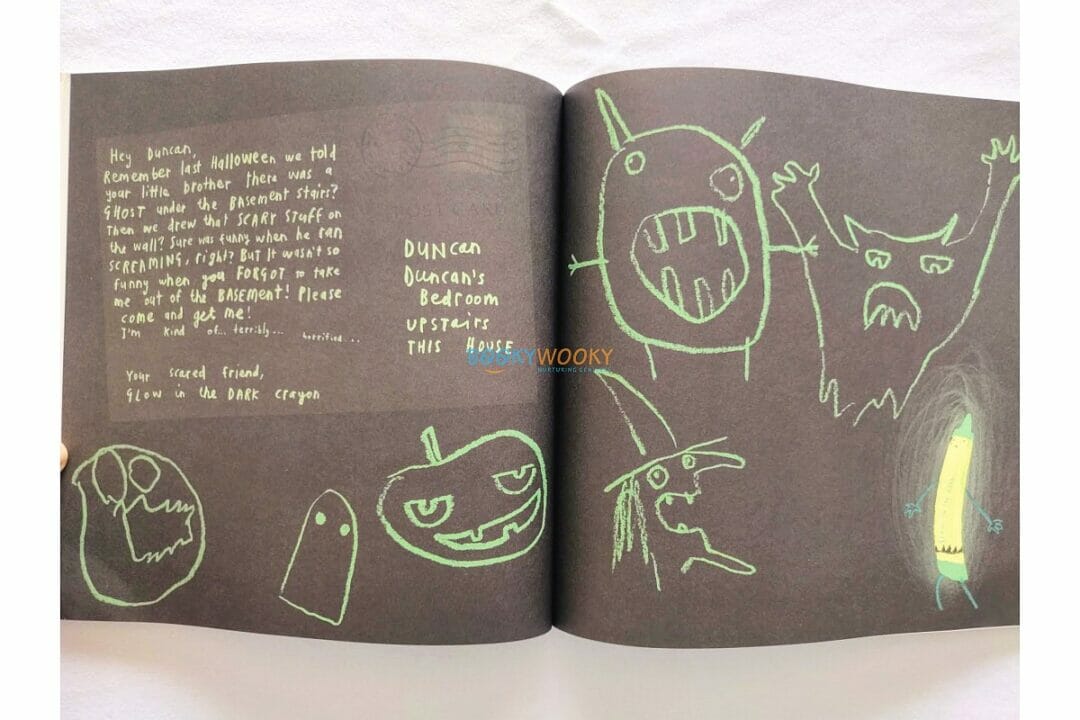 Hey Duncan,
Remember last Halloween we told
your little brother there was a
GHOST under the BASEMENT Stairs?
Then we drew that SCARY STUFF on
the wall? Sure was funny when he ran
SCREAMING, right? But It wasn't so
funny when you FORGOT to take
me out of the BASEMENT! Please
come and get me!
I'm kind of... terribly... horrified...
Your scared friend,
Glow in the DARK crayon
POST CARD
DUNCan
Duncan's
Bedroom
UPSTairs
THIS HOUSE
BOOKYWOOKY
NURTURING